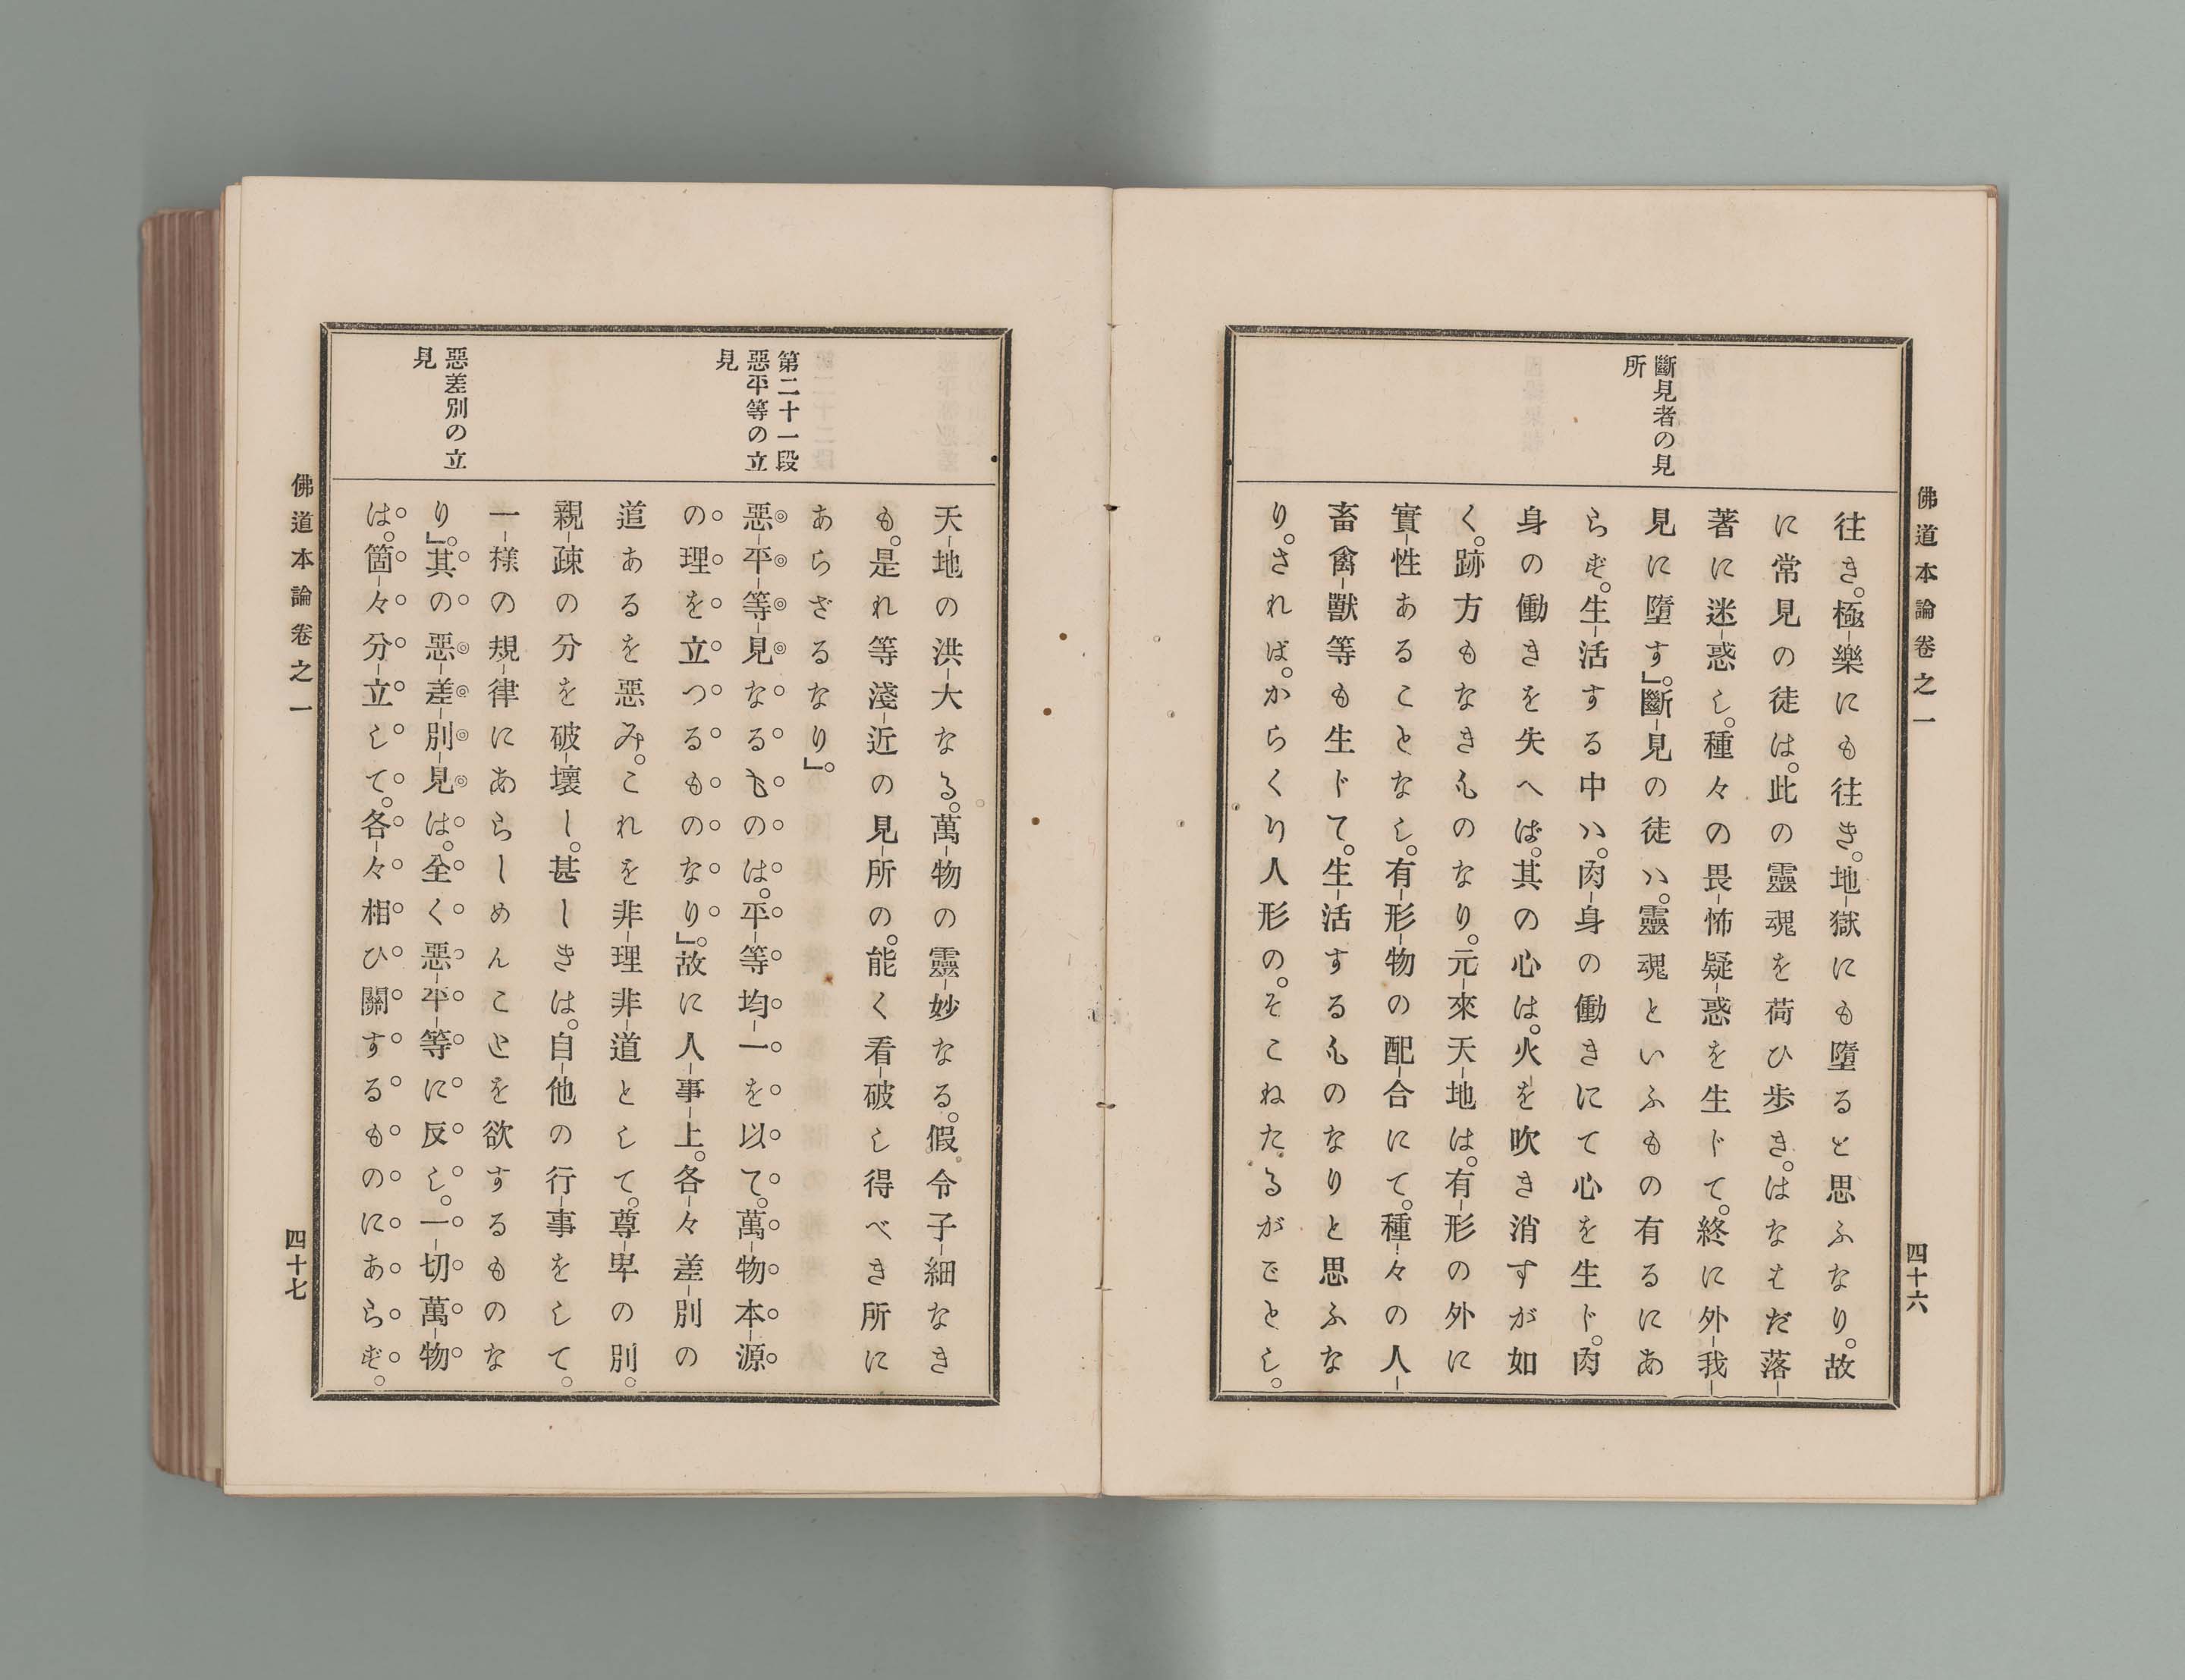 佛道本論卷之一
四十六
斷見者の見
所
往き。極樂にも往き。地獄にも墮ると思ふなり。故
に常見の徒は。此の靈魂を荷ひ歩き。はなはだ落
著に迷惑し。種々の畏怖疑惑を生じて。終に外我
見に墮す」。斷見の徒ハ。靈魂といふもの有るにあ
らず。生活する中ハ。肉身の働きにて心を生じ。肉
身の働きを失へば。其の心は。火を吹き消すが如
く。跡方もなきものなり。元來天地は。有形の外に
實性あることなし。有形物の配合にて。種々の人
畜禽獸等も生じて。生活するものなりと思ふな
り。されば。からくり人形の。そこねたるがごとし。
第二十一段
惡平等の立
見
惡差別の立
見
天地の洪大なる。萬物の靈妙なる。假令子細なき
も。是れ等淺近の見所の。能く看破し得べき所に
あらざるなり」。
惡平等見なるものは。平等均一を以て。萬物本源
の理を立つるものなり」。故に人事上。各々差別の
道あるを惡み。これを非理非道として。尊卑の別。
親疎の分を破壞し。甚しきは。自他の行事をして。
一樣の規律にあらしめんことを欲するものな
り」。其の惡差別見は。全く惡平等に反し。一切萬物
は。箇々分立して。各々相ひ關するものにあらず。
佛道本論卷之一
四十七